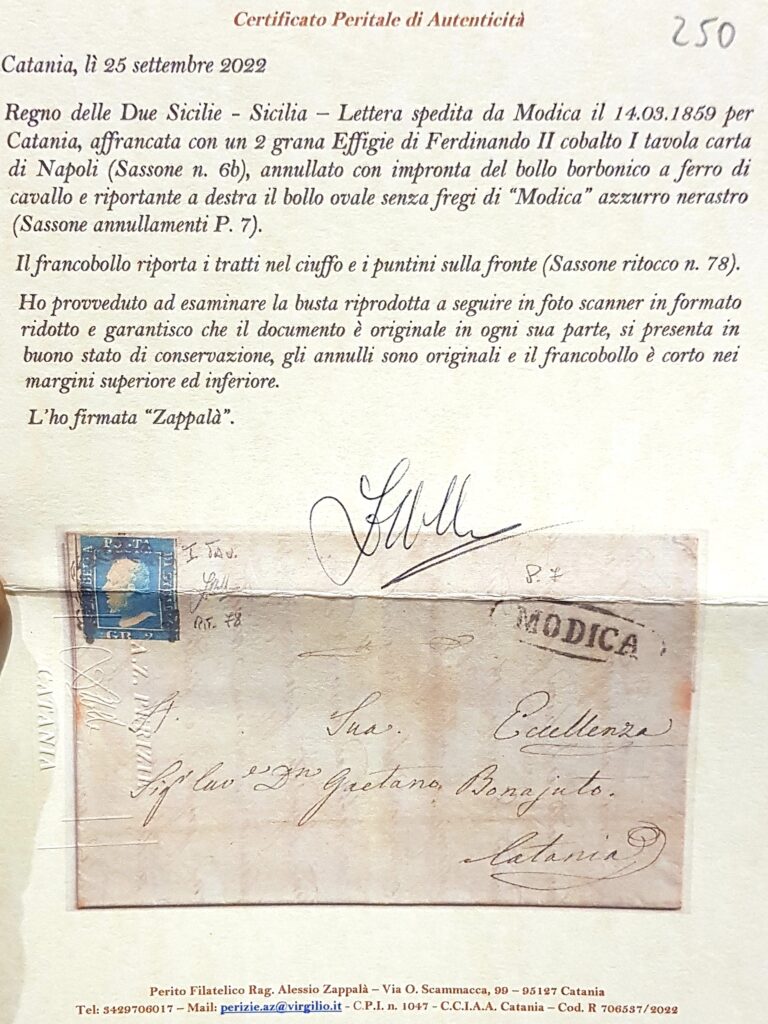 Certificato Peritale di Autenticità
250
Catania, lì 25 settembre 2022
Regno delle Due Sicilie - Sicilia – Lettera spedita da Modica il 14.03.1859 per
Catania, affrancata con un 2 grana Effigie di Ferdinando II cobalto I tavola carta
di Napoli (Sassone n. 6b), annullato con impronta del bollo borbonico a ferro di
cavallo e riportante a destra il bollo ovale senza fregi di “Modica” azzurro nerastro
(Sassone annullamenti P. 7).
Il francobollo riporta i tratti nel ciuffo e i puntini sulla fronte (Sassone ritocco n. 78).
Ho provveduto ad esaminare la busta riprodotta a seguire in foto scanner in formato
ridotto e garantisco che il documento è originale in ogni sua parte, si presenta in
buono stato di conservazione, gli annulli sono originali e il francobollo è corto nei
margini superiore ed inferiore.
L’ho firmata “Zappalà”.
POSTA
GR. 2
I TAV.
RIT. 78
P. 7
MODICA
A.Z.
CATANIA
A Sua Eccellenza
Gaetano Bonajuto.
Catania
Perito Filatelico Rag. Alessio Zappalà – Via O. Scammacca, 99 – 95127 Catania
Tel: 3429706017 – Mail: perizie.az@virgilio.it - C.P.I. n. 1047 - C.C.I.A.A. Catania – Cod. R 706537/2022